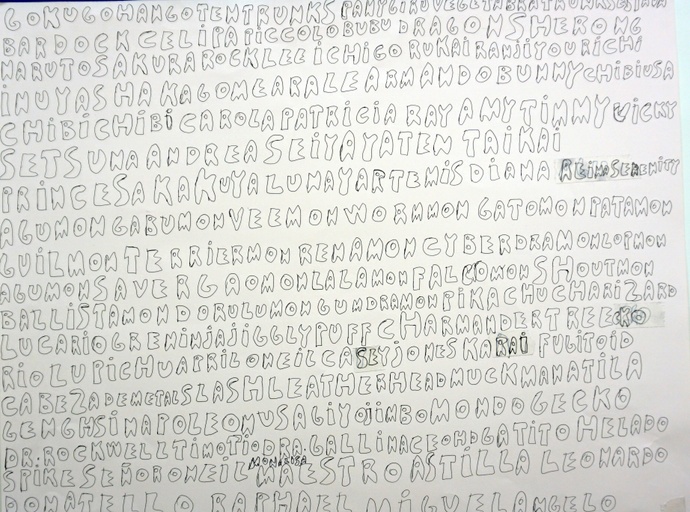 GOKUGOHANGOTENTRUNKS PANYGIRUVEGETABRATRUNKS
BARDOCK CELIPAPICCOLOBUBU DRAGONSHERONG
NARUTOSAKURAROCKLEEICHIGO RUKAIRANJIYOURICHI
INUYASHAKAGOMEARALEARMANDOBUNNYCHIBIUSA
CHIBICHIBI CAROLAPATRICIA RAY AMYTIMMY VICKY
SETSUNAANDREASEIYAYATEN TAIKAI
PRINCESAKAKUYALUNAYARTEMISDIANA REINASERENITY
AGUMONGABUMONVEEMONWORMMON GATOMONPATAMON
GUILMONTERRIERMONRENAMONCYBERDRAMONLOPMON
AGUMONSAVERGAOMONLALAMONFALCOMONSHOUTMON
BALLISTAMONDORULUMONGUMDRAMONPIKACHUCHARIZARD
LUCARIOGRENINJAJIGGLYPUFFCHARMANDERTREECKO
RIOLUPICHUAPRILONEILCASEYJONESKARAI FUGITOID
CABEZADEMETALSLASHLEATHERHEADMUCKMANATILA
GENGHSINAPOLEONUSAGIYOJIMBOMONDOGECKO
DR.ROCKWELLTIMOTIODRA.GALLINACEOHDGATITOHELADO
SPIKESEÑORONEILMONALISAMAESTROASTILLA LEONARDO
DONATELLO RAPHAEL MIGUELANGELO